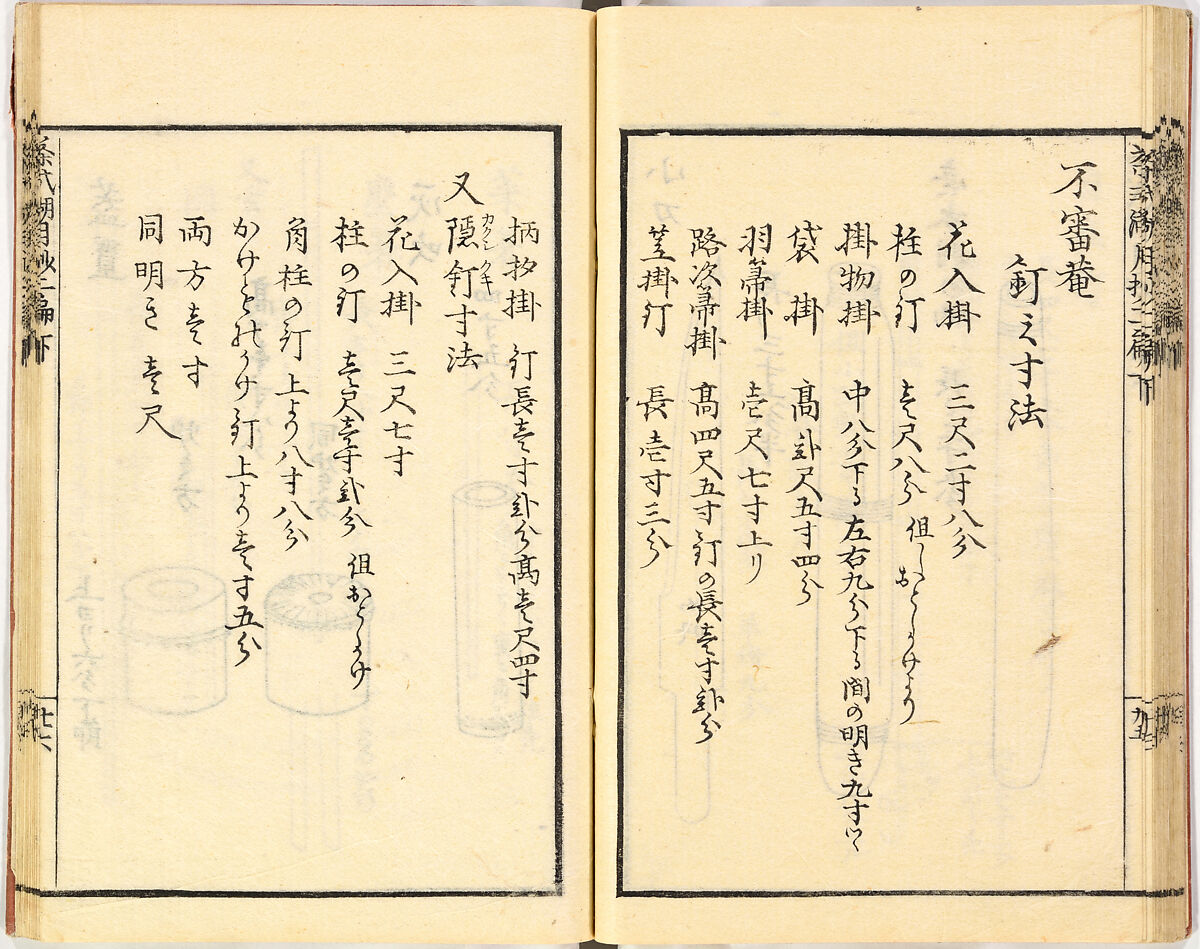 不審菴
釘之寸法
花入掛 三尺二寸八分
柱の釘 壱尺八分 但しおとしかけより
掛物掛 中八分下る左右九分下る間の明き九寸ツヽ
袋掛 高弐尺五寸四分
羽箒掛 壱尺七寸上り
路次箒掛 高四尺五寸釘の長壱寸弐分
笠掛釘 長壱寸三分
柄杓掛 釘長壱寸弐分高壱尺四寸
又隠釘寸法
カクシクキ
花入掛 三尺七寸
柱の釘 壱尺壱寸弐分 但おとしかけ
角柱の釘 上より八寸八分
かけとのかけ釘上より壱寸五分
両方壱寸
同明き 壱尺
茶式湖月抄二編下